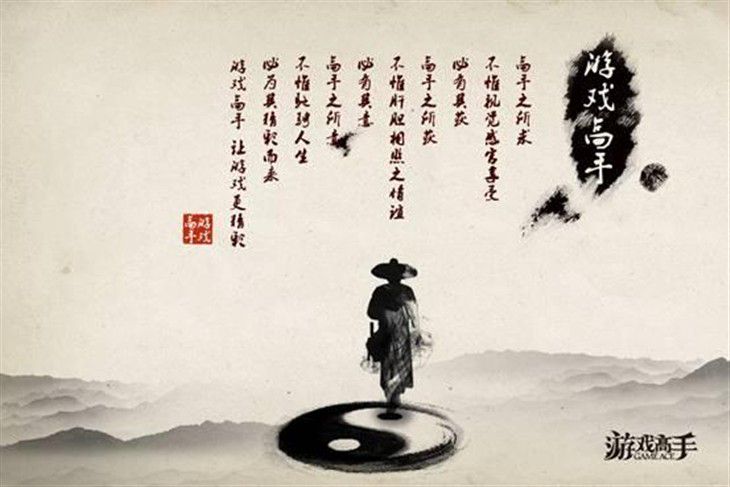 游戏高手
高手之所求
不惟视觉感官享受
必有其求
高手之所获
不惟肝胆相照之情谊
必有其意
高手之所意
不惟驰骋人生
必为其精彩而来
游戏高手 让游戏更精彩
游戏高手
游戏高手
GAMEACE